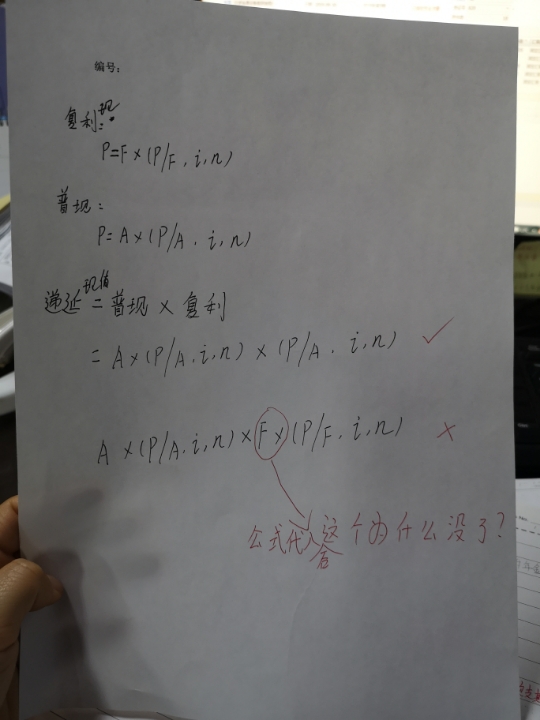 编号:
复利现:
P=F×(P/F,i,n)
普现:
P=A×(P/A,i,n)
递延现值=普现×复利
=A×(P/A,i,n)×(P/A,i,n) ✓
A×(P/A,i,n)×F×(P/F,i,n) ×
公式代入这个为什么没了?